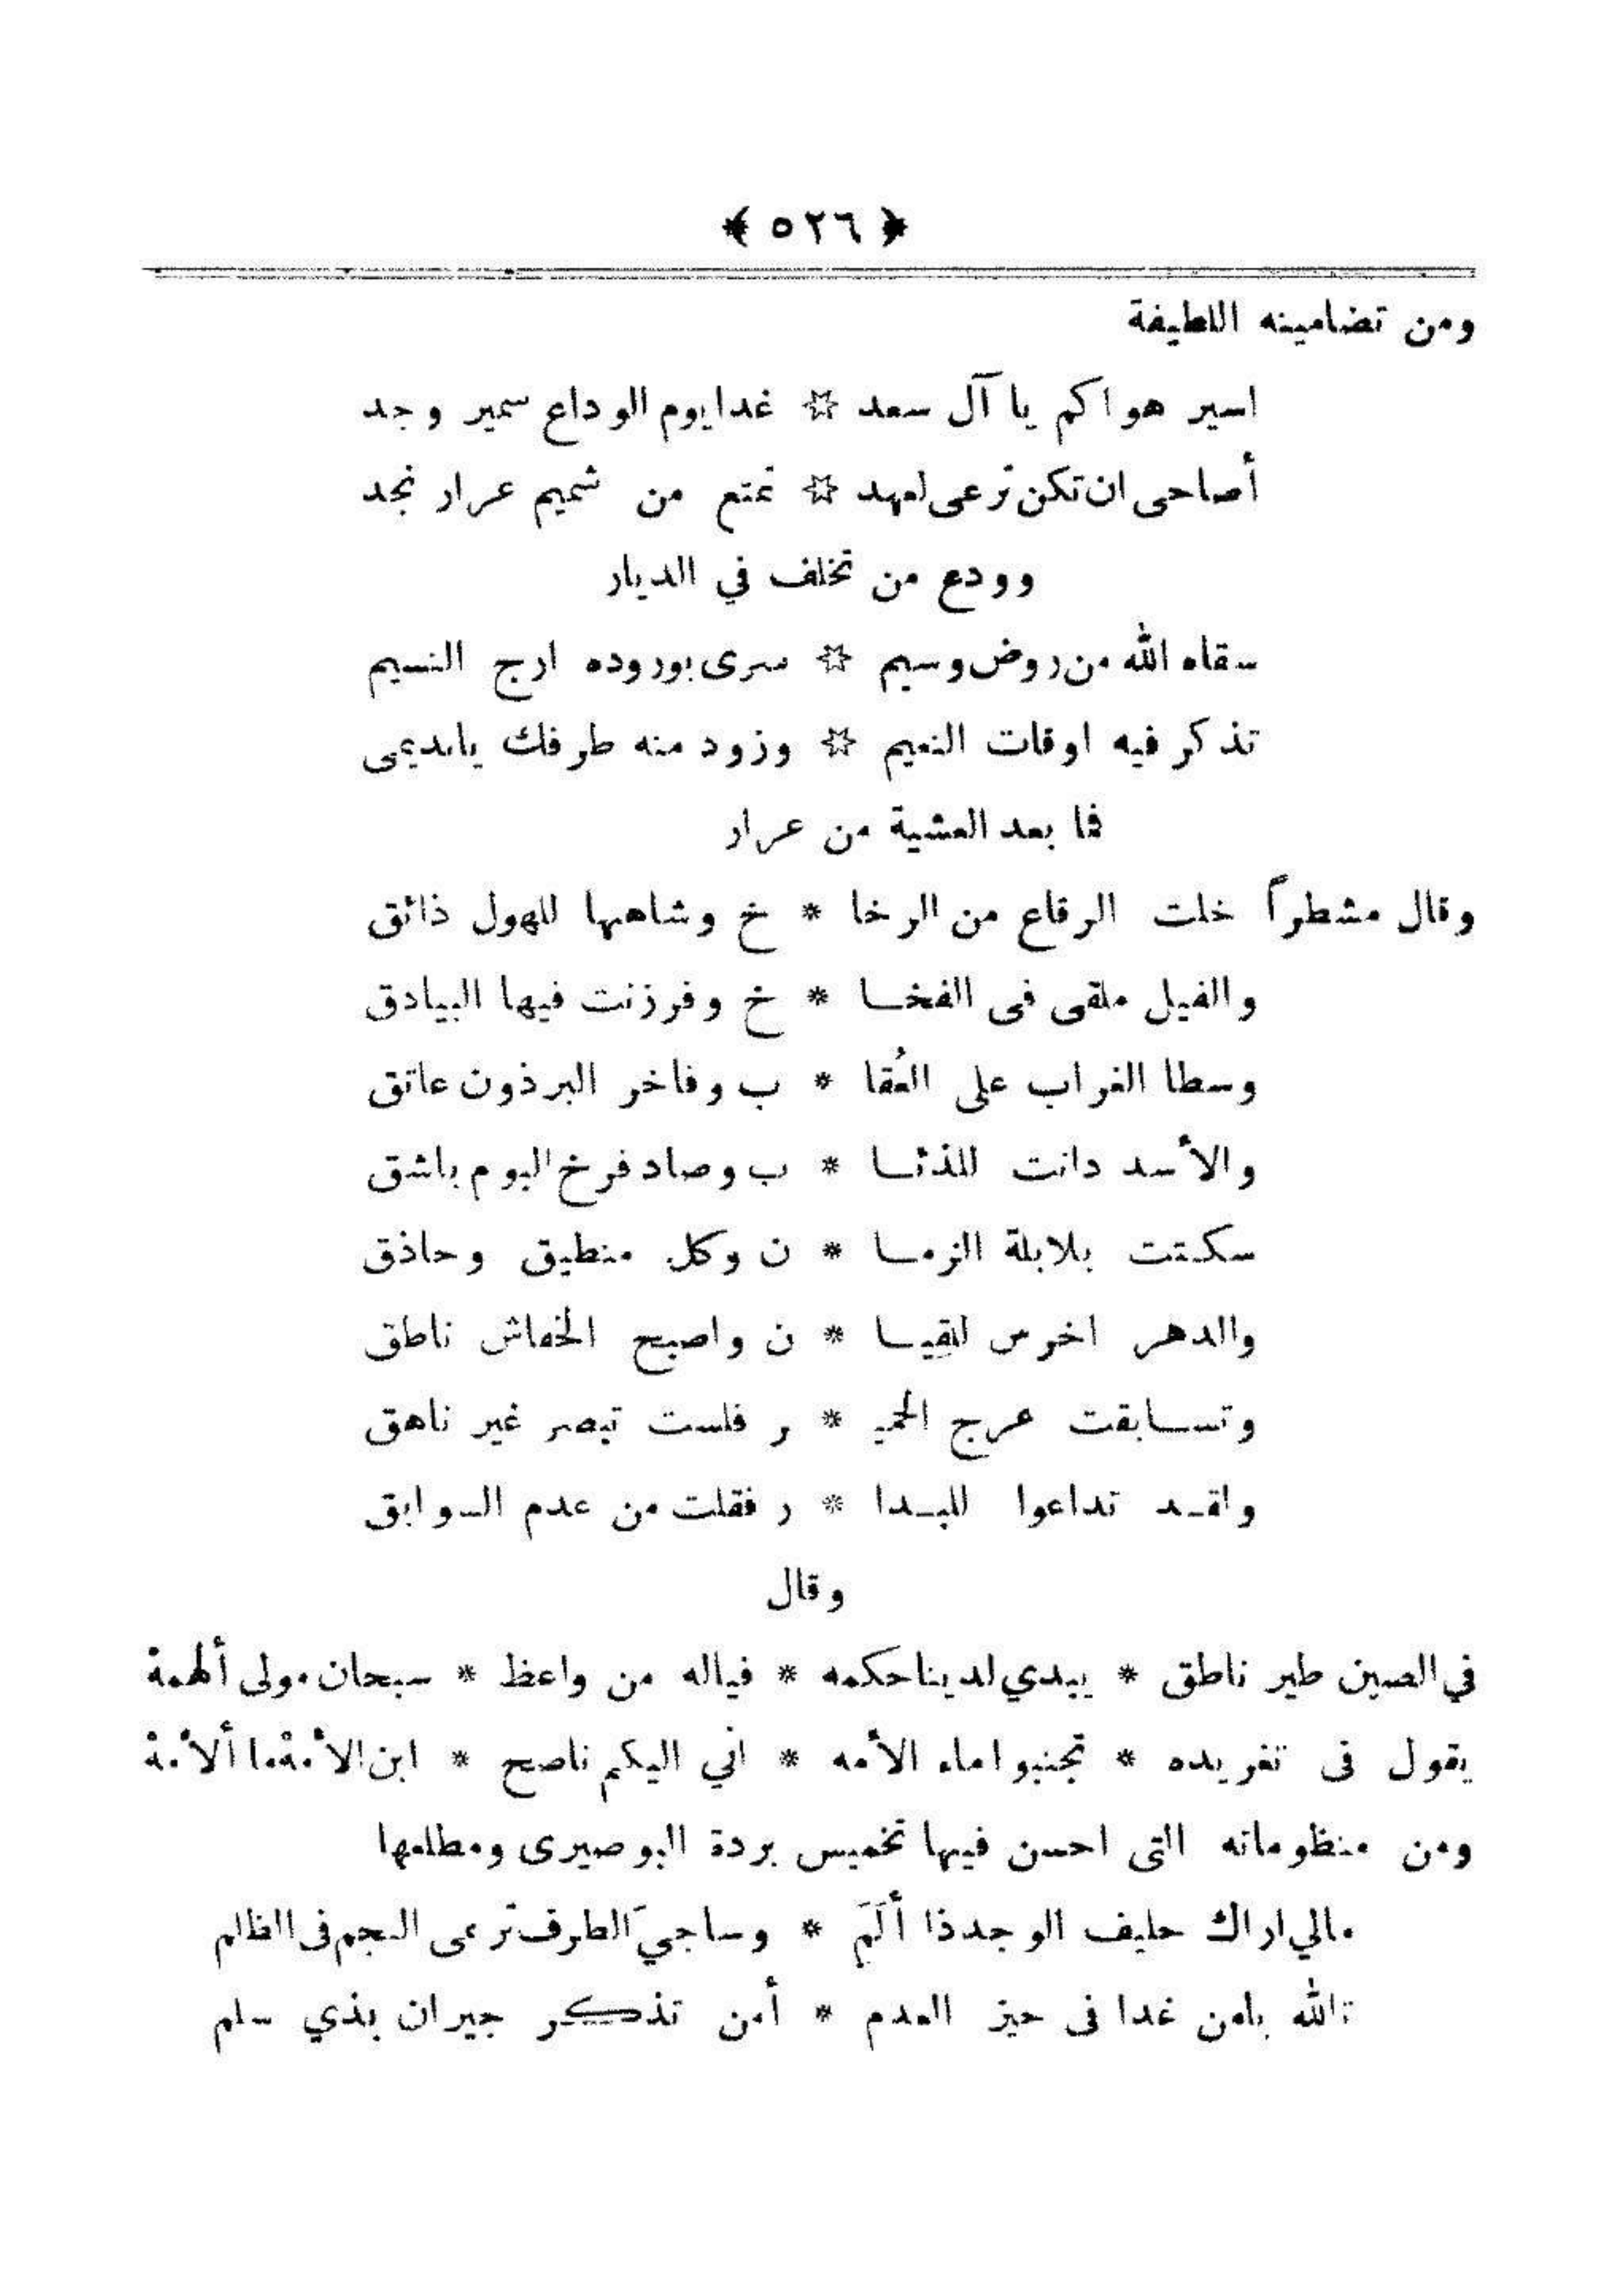 ﴿ ٥٢٦ ﴾
ومن تضامينه اللطيفة
اسير هواكم يا آل سعد ☆ غدا يوم الوداع سمير وجد
أصاحى ان تكن ترعى لعهد ☆ تمتع من شميم عرار نجد
وودع من تخلف في الديار
سقاه الله من روض وسيم ☆ سرى بوروده ارج النسيم
تذكر فيه اوقات النعيم ☆ وزود منه طرفك يانديمى
فما بعد العشية من عرار
وقال مشطراً خلت الرقاع من الرخا * خ وشاهها للهول ذائق
والفيل ملقى فى الفخا * خ وفرزنت فيها البيادق
وسطا الغراب على العُقا * ب وفاخر البرذون عاتق
والأسد دانت للذئا * ب وصاد فرخ البوم باشق
سكتت بلابلة الزما * ن وكل منطيق وحاذق
والدهر اخرس للقيا * ن واصبح الخفاش ناطق
وتسابقت عرج الحمي * ر فلست تبصر غير ناهق
ولقد تداعوا للبدا * ر فقلت من عدم السوابق
وقال
في الصين طير ناطق * يبدي لدينا حكمه * فياله من واعظ * سبحان مولى ألهمهْ
يقول فى تغريده * تجنبوا ماء الأمه * اني اليكم ناصح * ابن الأمهْ ما ألأمهْ
ومن منظوماته التى احسن فيها تخميس بردة البوصيرى ومطلعها
مالي اراك حليف الوجد ذا أَلَمَ * وساجيَ الطرف ترعى النجم فى الظلم
تالله يامن غدا فى حيز العدم * أمن تذكر جيران بذي سلم